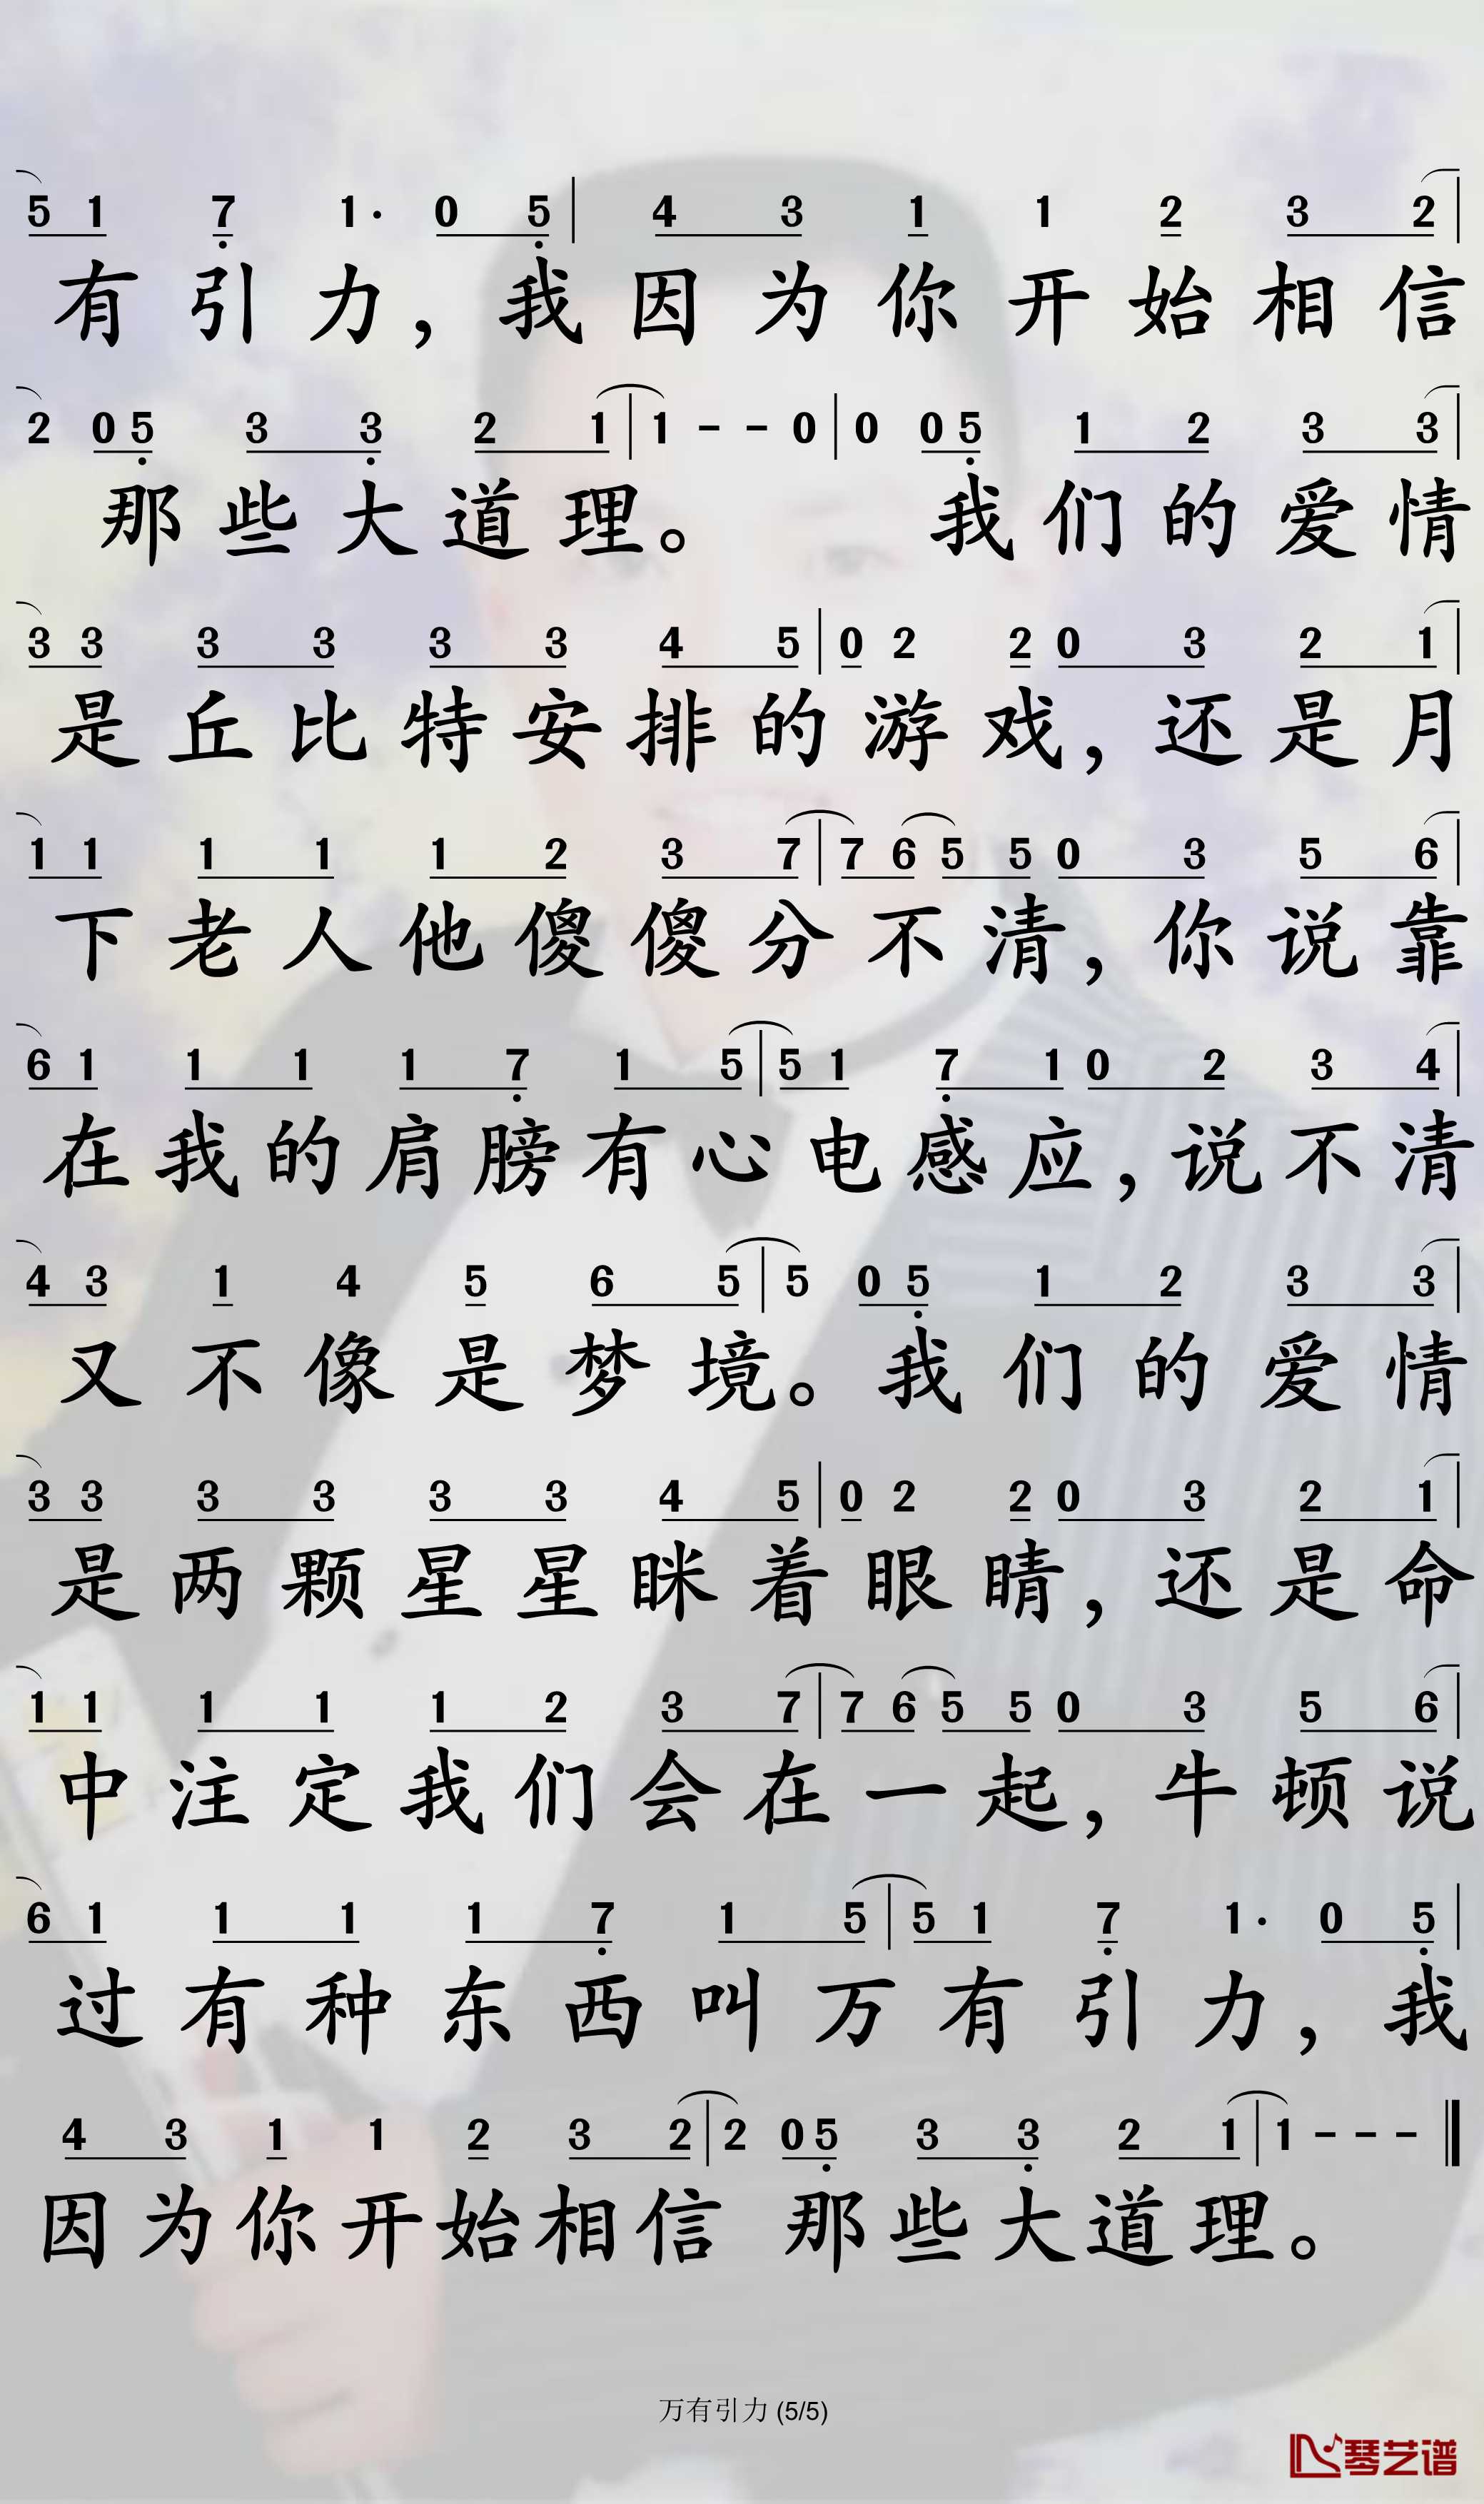 5 1 7 1· 0 5 | 4 3 1 1 2 3 2 |
有引力，我因为你开始相信
2 0 5 3 3 2 1 | 1 - - 0 | 0 0 5 1 2 3 3 |
那些大道理。 我们的爱情
3 3 3 3 3 3 4 5 | 0 2 2 0 3 2 1 |
是丘比特安排的游戏，还是月
1 1 1 1 1 2 3 7 | 7 6 5 5 0 3 5 6 |
下老人他傻傻分不清，你说靠
6 1 1 1 1 7 1 5 | 5 1 7 1 0 2 3 4 |
在我的肩膀有心电感应，说不清
4 3 1 4 5 6 5 | 5 0 5 1 2 3 3 |
又不像是梦境。我们的爱情
3 3 3 3 3 3 4 5 | 0 2 2 0 3 2 1 |
是两颗星星眯着眼睛，还是命
1 1 1 1 1 2 3 7 | 7 6 5 5 0 3 5 6 |
中注定我们会在一起，牛顿说
6 1 1 1 1 7 1 5 | 5 1 7 1· 0 5 |
过有种东西叫万有引力，我
4 3 1 1 2 3 2 | 2 0 5 3 3 2 1 | 1 - - - ‖
因为你开始相信 那些大道理。
万有引力 (5/5)
琴艺谱